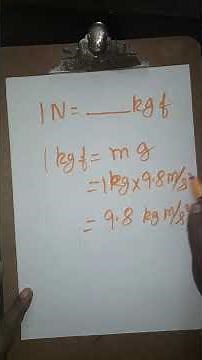 1 N = ___ kg f
1 kg f = m g
= 1 kg × 9.8 m/s²
= 9.8 kg m/s²